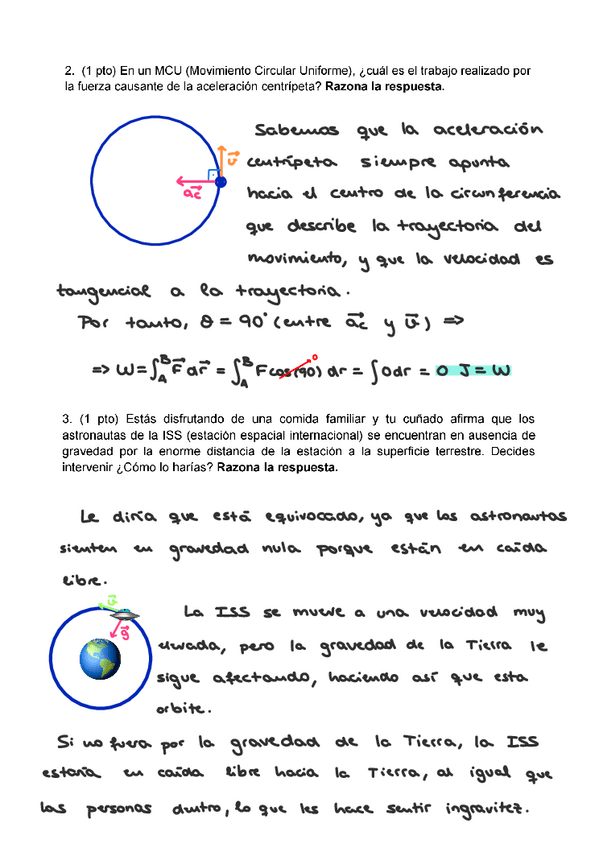 2. (1 pto) En un MCU (Movimiento Circular Uniforme), ¿cuál es el trabajo realizado por
la fuerza causante de la aceleración centrípeta? Razona la respuesta.
Sabemos que la aceleración
centrípeta siempre apunta
hacia el centro de la circunferencia
que describe la trayectoria del
movimiento, y que la velocidad es
tangencial a la trayectoria.
v⃗
a⃗c
Por tanto, θ = 90° (entre a⃗c y v⃗) =>
=> W = ∫_A^B F⃗ dr⃗ = ∫_A^B F cos(90) dr = ∫ 0 dr = 0 J = W
0
3. (1 pto) Estás disfrutando de una comida familiar y tu cuñado afirma que los
astronautas de la ISS (estación espacial internacional) se encuentran en ausencia de
gravedad por la enorme distancia de la estación a la superficie terrestre. Decides
intervenir ¿Cómo lo harías? Razona la respuesta.
Le diría que está equivocado, ya que los astronautas
sienten en gravedad nula porque están en caída
libre.
v⃗
g⃗
La ISS se mueve a una velocidad muy
elevada, pero la gravedad de la Tierra le
sigue afectando, haciendo así que esta
orbite.
Si no fuera por la gravedad de la Tierra, la ISS
estaría en caída libre hacia la Tierra, al igual que
las personas dentro, lo que les hace sentir ingravitez.